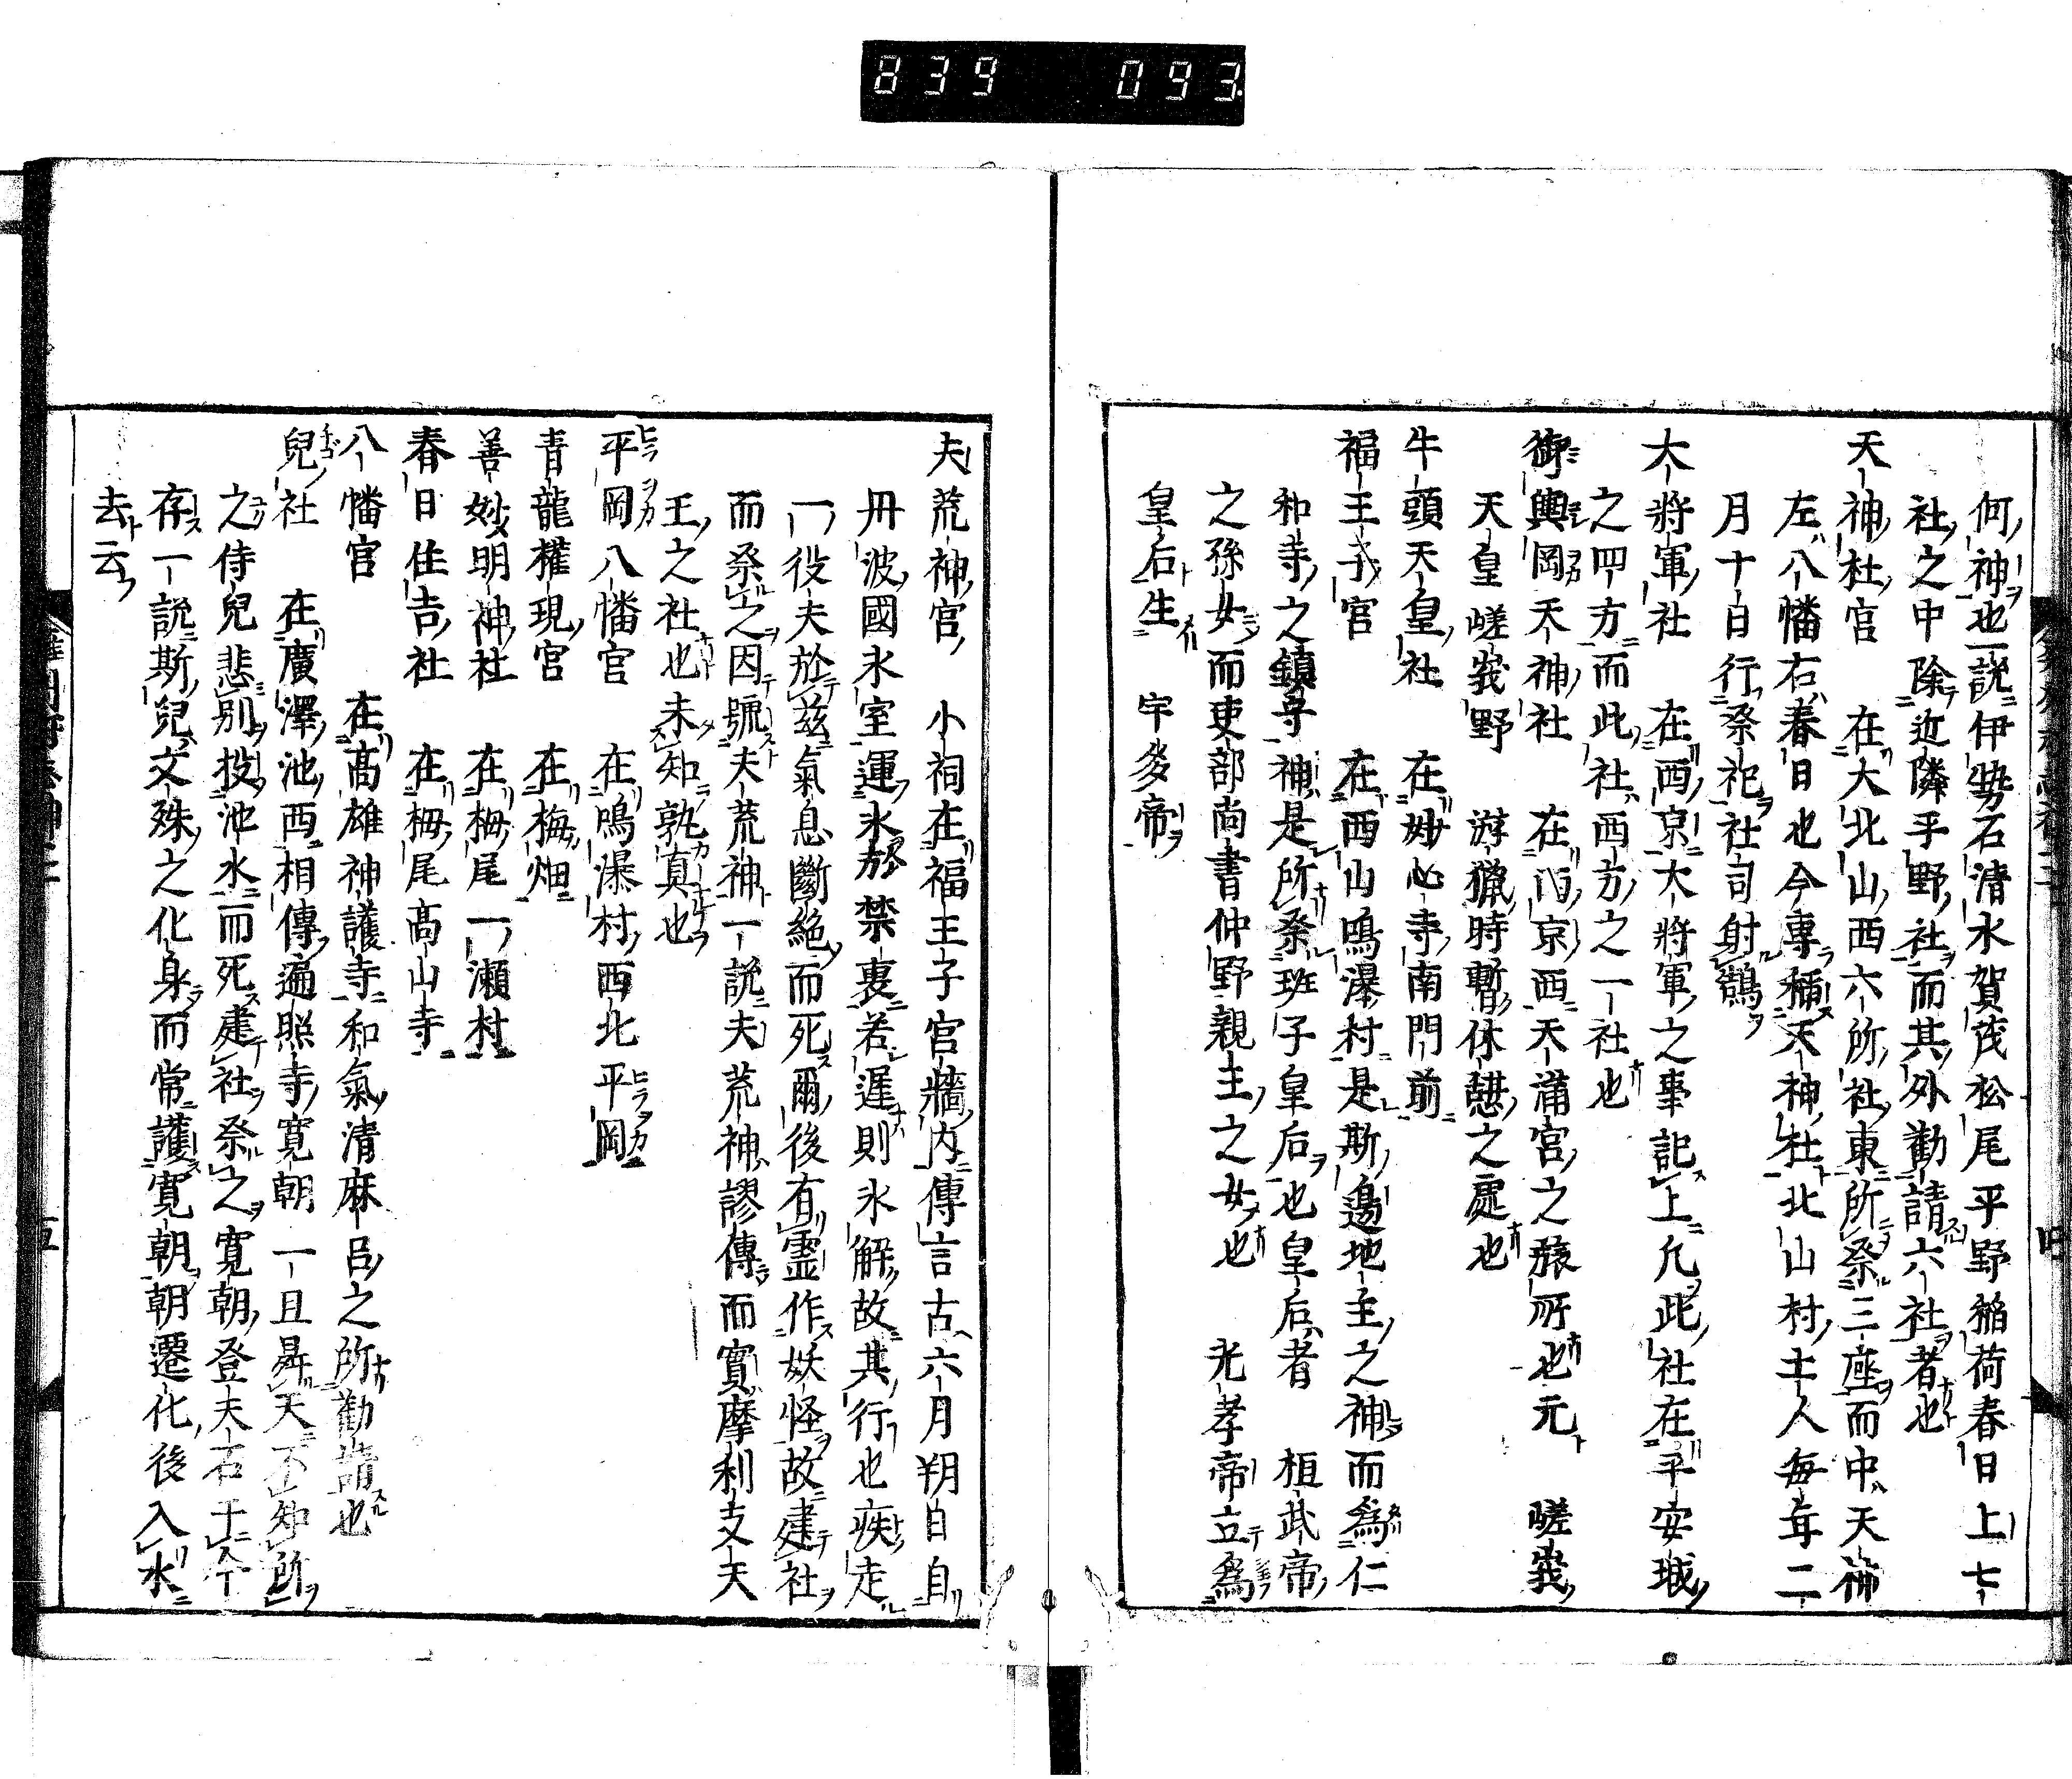 839 093
何神也一説伊勢石清水賀茂松尾平野稲荷春日上七
社之中除近隣平野社而其外勸請六社者也
天神社官 在大北山西六所社東所祭三座而中天神
左八幡右春日也今專稱天神社北山村土人每年二
月十日行祭祀社司射鵠
大將軍社 在西京大將軍之事記上凡此社在平安城
之四方而此社西方之一社也
御輿岡天神社 在西京西天滿宮之旅所也元 嵯峩
天皇嵯峩野 游獵時暫休憩之處也
牛頭天皇社 在妙心寺南門前
福王子宮 在西山鳴瀑村是斯邊地主之神而爲仁
和寺之鎮守神是所祭班子皇后也皇后者 桓武帝
之孫女而吏部尚書仲野親王之女也 光孝帝立爲
皇后生 宇多帝
夫荒神宮 小祠在福王子宮牆內傳言古六月朔日自
丹波國氷室運氷於禁裏若遲則氷解故其行也疾走
一役夫於茲氣息斷絶而死爾後有靈作妖怪故建社
而祭之因號夫荒神一說夫荒神謬傳而實摩利支天
王之社也未知孰真也
平岡八幡宮 在鳴瀑村西北平岡
青龍權現宮 在梅畑
善妙明神社 在栂尾一瀬村
春日住吉社 在栂尾髙山寺
八幡宮 在髙雄神護寺和氣清麻呂之所勸請也
兒社 在廣澤池西相傳遍照寺寛朝一旦昇天不知所
之侍兒悲別投池水而死建社祭之寛朝登天石于今
存一說斯兒文殊之化身而常護寛朝朝遷化後入水
去云
四
五